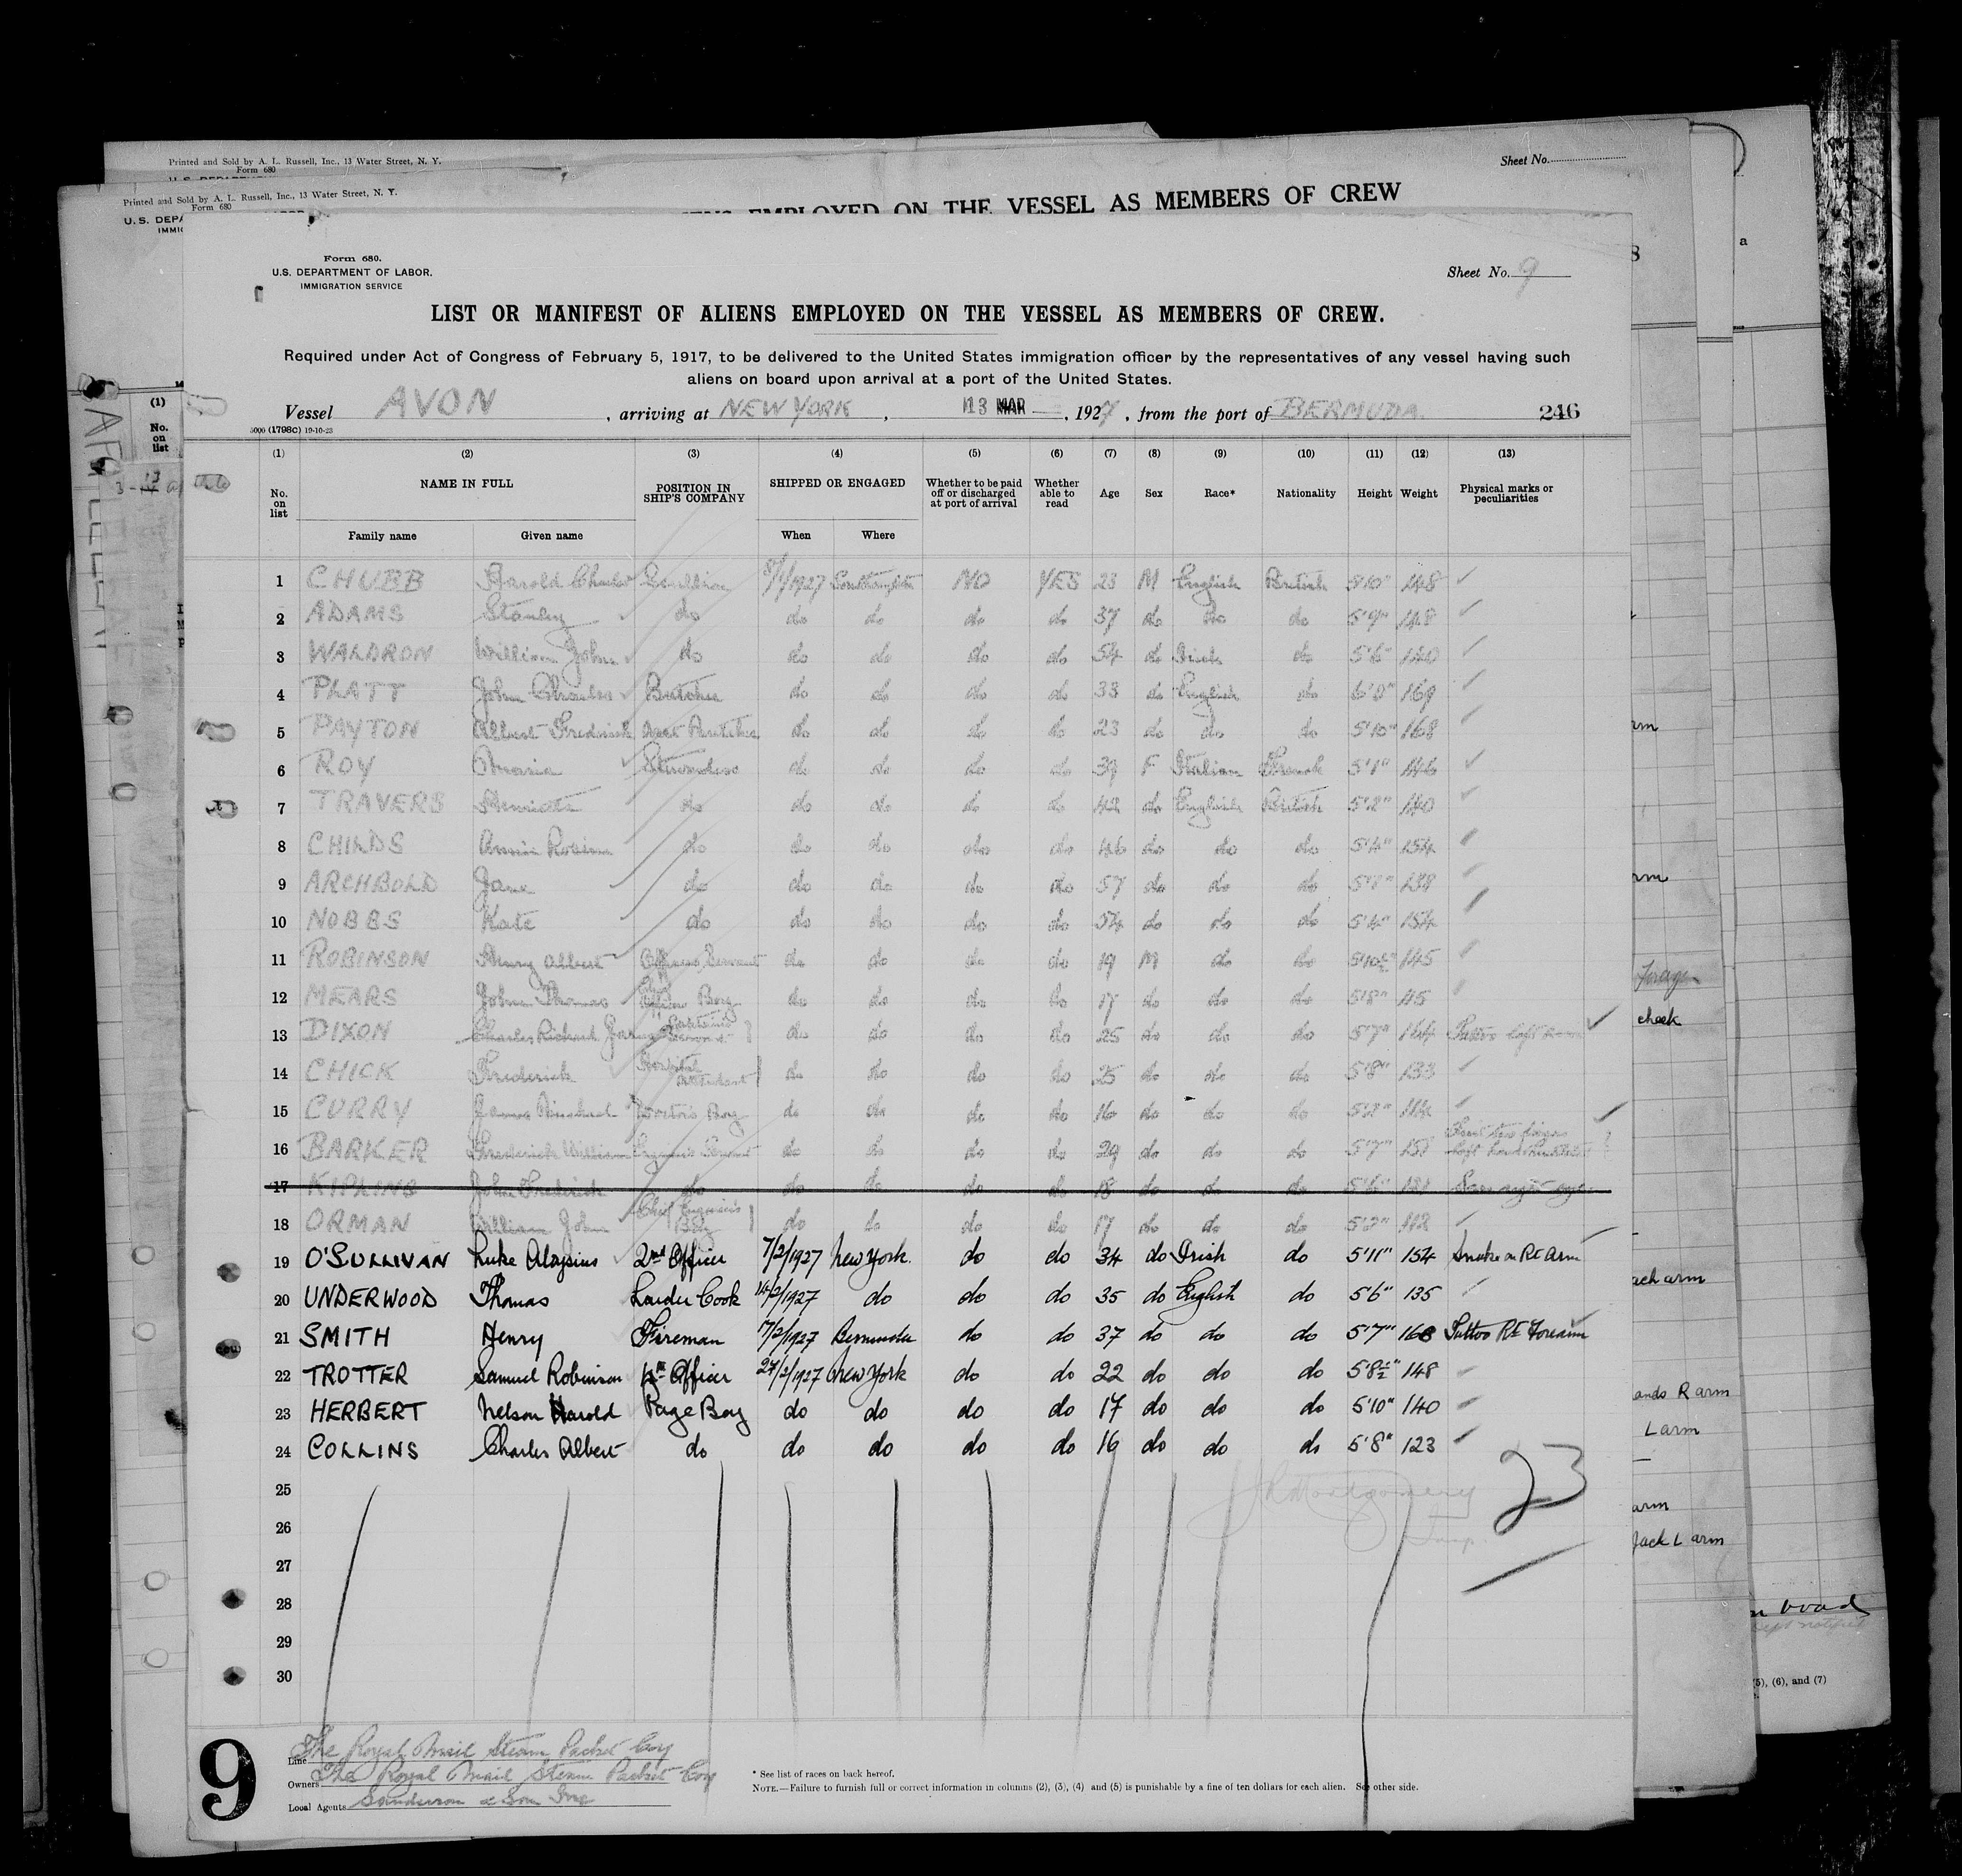 Printed and Sold by A. L. Russell, Inc., 13 Water Street, N. Y.
Form 680
Sheet No.
Printed and Sold by A. L. Russell, Inc., 13 Water Street, N. Y.
Form 680
U. S. DEPA
IMMIG
EMPLOYED ON THE VESSEL AS MEMBERS OF CREW
Form 680.
U.S. DEPARTMENT OF LABOR.
IMMIGRATION SERVICE
Sheet No. 9
LIST OR MANIFEST OF ALIENS EMPLOYED ON THE VESSEL AS MEMBERS OF CREW.
Required under Act of Congress of February 5, 1917, to be delivered to the United States immigration officer by the representatives of any vessel having such
aliens on board upon arrival at a port of the United States.
Vessel AVON, arriving at NEW YORK, 13 MAR, 1927, from the port of BERMUDA 246
5000 (1798C) 19-10-23
(1) (2) (3) (4) (5) (6) (7) (8) (9) (10) (11) (12) (13)
No. on list NAME IN FULL POSITION IN SHIP'S COMPANY SHIPPED OR ENGAGED Whether to be paid off or discharged at port of arrival Whether able to read Age Sex Race* Nationality Height Weight Physical marks or peculiarities
Family name Given name When Where
1 CHUBB Harold Charles Scullion 8/1/1927 Southampton NO YES 23 M English British 5'10" 148
2 ADAMS Stanley do do do do do 37 do do do 5'9" 148
3 WALDRON William John do do do do do 54 do Irish do 5'6" 140
4 PLATT John Charles Butcher do do do do 33 do English do 6'0" 169
5 PAYTON Albert Frederick Asst Butcher do do do do 23 do do do 5'10" 168
6 ROY Maria Stewardess do do do do 39 F Italian French 5'1" 146
7 TRAVERS Henrietta do do do do do 42 do English British 5'2" 140
8 CHILDS Annie Rosina do do do do do 46 do do do 5'4" 154
9 ARCHBOLD Jane do do do do do 57 do do do 138
10 NOBBS Kate do do do do do 54 do do do 5'4" 154
11 ROBINSON Henry Albert Officers Servant do do do do 19 M do do 145
12 MEARS John Thomas Officers Boy do do do do 17 do do do 5'8"
13 DIXON Charles Richard James Servant do do do do 25 do do do 5'7" 144 Tattoo left arm
14 CHICK Frederick Hospital Attendant do do do do 25 do do do 5'8" 133
15 CURRY James Michael Doctor's Boy do do do do 16 do do do 114
16 BARKER Frederick William Servant do do do do 29 do do do 5'7" First two fingers left hand
17 KIPLING John Frederick do do do do do 18 do do do 5'6" Scar right eye
18 ORMAN William John Chief Engineer's Boy do do do do 17 do do do 112
19 O'SULLIVAN Luke Aloysius 2nd Officer 7/2/1927 New York. do do 34 do Irish do 5'11" 154 Snake on Rt Arm
20 UNDERWOOD Thomas Larder Cook 14/2/1927 do do do 35 do English do 5'6" 135
21 SMITH Henry Fireman 17/2/1927 Bermuda do do 37 do do do 5'7" 168 Tattoo Rt Forearm
22 TROTTER Samuel Robinson 4th Officer 24/2/1927 New York do do 22 do do do 5'8½" 148
23 HERBERT Nelson Harold Page Boy do do do do 17 do do do 5'10" 140
24 COLLINS Charles Albert do do do do do 16 do do do 5'8" 123
25
26
27
28
29
30
23
J R Montgomery
Insp.
cheek
ach arm
ands R arm
L arm
arm
Jack L arm
(5), (6), and (7)
9
Line The Royal Mail Steam Packet Coy
Owners The Royal Mail Steam Packet Coy
Local Agents Sanderson & Son Inc
* See list of races on back hereof.
NOTE.—Failure to furnish full or correct information in columns (2), (3), (4) and (5) is punishable by a fine of ten dollars for each alien. See other side.